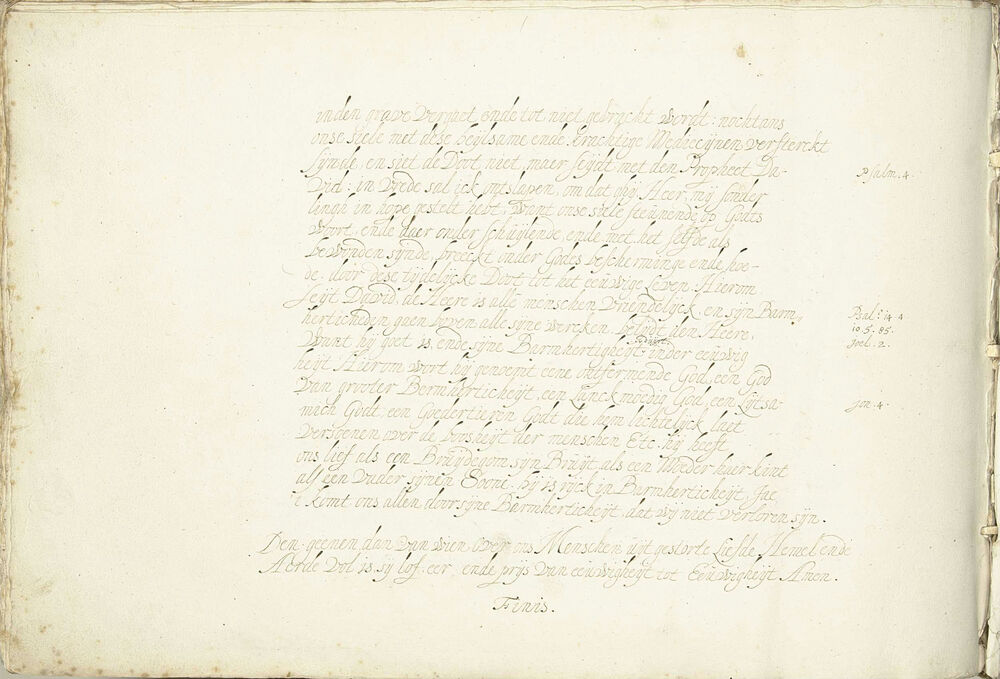 inden grave vergaet ende tot niet gebrockt wordt: nochtans
onse siele met dese heijlsame ende krachtige Medecijnen versterckt
sijnde, en siet de Doot niet, maer seijdt met den Propheet Da-
vid: in vrede sal ick ontslapen, om dat ghij Heer mij sonder
lingh in hope gestelt hebt, Want onse siele steunende op Godts
woort, ende daer onder schuijlende, ende met het selfde als
bewonden sijnde, breeckt onder Godes bescherminge ende hoe-
de, door dese tijdelijcke Doot tot het eeuwige Leven. Hierom
seijt David, de Heere is alle menschen vriendelijck, en sijn Barm
herticheden gaen boven alle sijne wercken, belijdt den Heere,
Want hij goet is, ende sijne Barmhertigheijt duirt inder eeuwig
heijt. Hierom wort hij genoemt eene ontfermende God, een God
van grooter Barmherticheijt, een Lanckmoedig God, een Lijtsa-
mich Godt, een Goedertieren Godt die hem lichtelijck laet
versoenen over de boosheijt der menschen Etc. hij heeft
ons lief als een Bruijdegom sijn Bruijt, als een Moeder haer kint
als een Vader sijnen Soone. hij is rijck in Barmherticheijt, Jae
't komt ons allen door sijne Barmherticheijt, dat wij niet verloren sijn.
Den geenen dan van wien over ons Menschen uijt gestorte Liefde, Hemel ende
Aerde vol is, sij lof, eer, ende prijs van eeuwigheijt tot Eeuwigheijt Amen.
Finis.
Psalm. 4.
Psal: 14 4
10 5. 85.
joel. 2.
jon. 4.